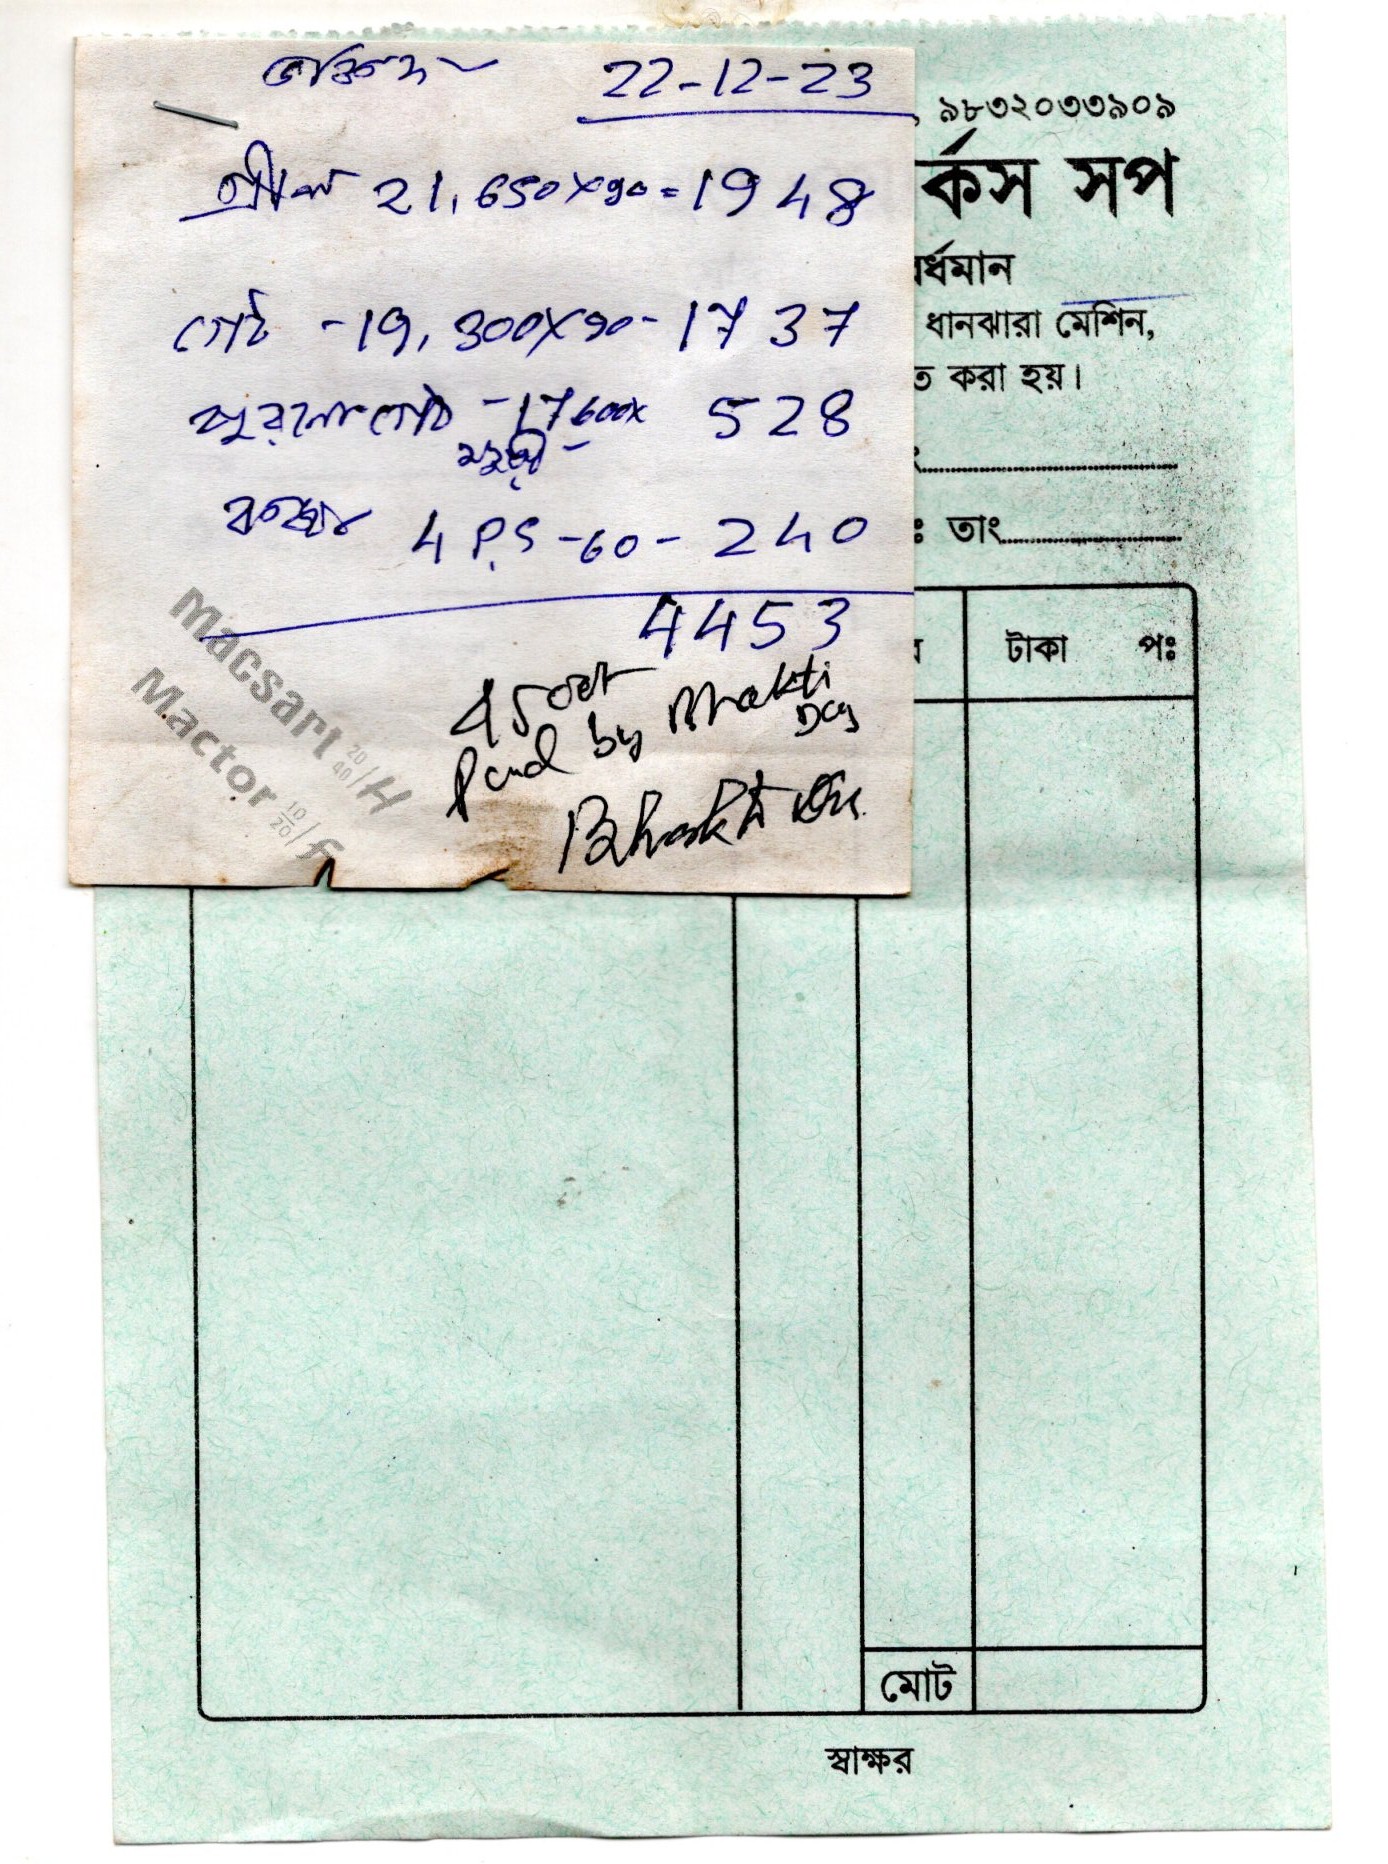 22-12-23
গ্রীল 21,650x90=1948
গেট -19,300x90-1737
পুরনো গেট -17600x 528
মজুরী -
কব্জা 4 P.S -60- 240
4453
Paid by Bhakti
Das
Bhakti Das
Macsart 20/40/H
Mactor 10/20/F
, ৯৮৩২০৩৩৯০৯
র্কস সপ
বর্ধমান
ধানঝারা মেশিন,
ত করা হয়।
ং
ঃ তাং
টাকা পঃ
মোট
স্বাক্ষর